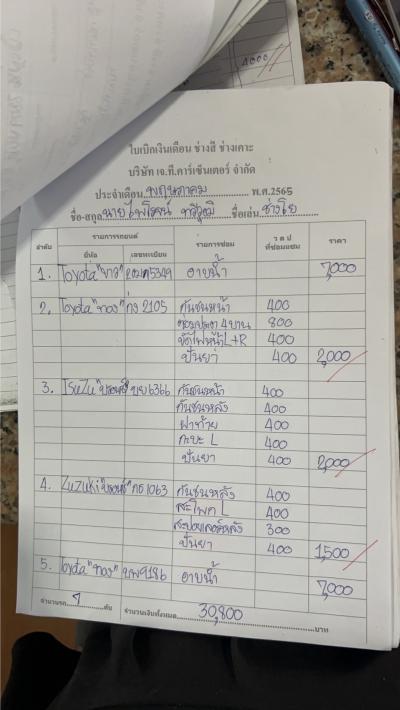 4000
ใบเบิกเงินเดือน ช่างสี ช่างเคาะ
บริษัท เจ.ที.คาร์เซ็นเตอร์ จำกัด
ประจำเดือน พฤษภาคม พ.ศ.2565
ชื่อ-สกุล นายไพโรจน์ ชื่อเล่น ช่างโย
ลำดับ รายการรถยนต์ รายการซ่อม ว ด ป ที่ซ่อมแซม ราคา
ยี่ห้อ เลขทะเบียน
1. Toyota "ขาว" 5349 อาบน้ำ 7,000
2. Toyota "ทอง" กง 2105 กันชนหน้า 400
ซ่อมประตู 4 บาน 800
ขัดไฟหน้า L+R 400
ปั่นยา 400 2,000
3. ISUZU "บรอนซ์" บย 6366 กันชนหน้า 400
กันชนหลัง 400
ฝาท้าย 400
กะบะ L 400
ปั่นยา 400 2,000
4. ZUZUKi "บรอนซ์" กธ 1063 กันชนหลัง 400
สะโพก L 400
สะปอยเลอร์หลัง 300
ปั่นยา 400 1,500
5. Toyota "ทอง" ขพ 9186 อาบน้ำ
7,000
จำนวนรถ 7 คัน จำนวนเงินทั้งหมด 30,800 บาท